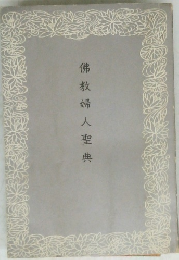 佛教婦人聖典